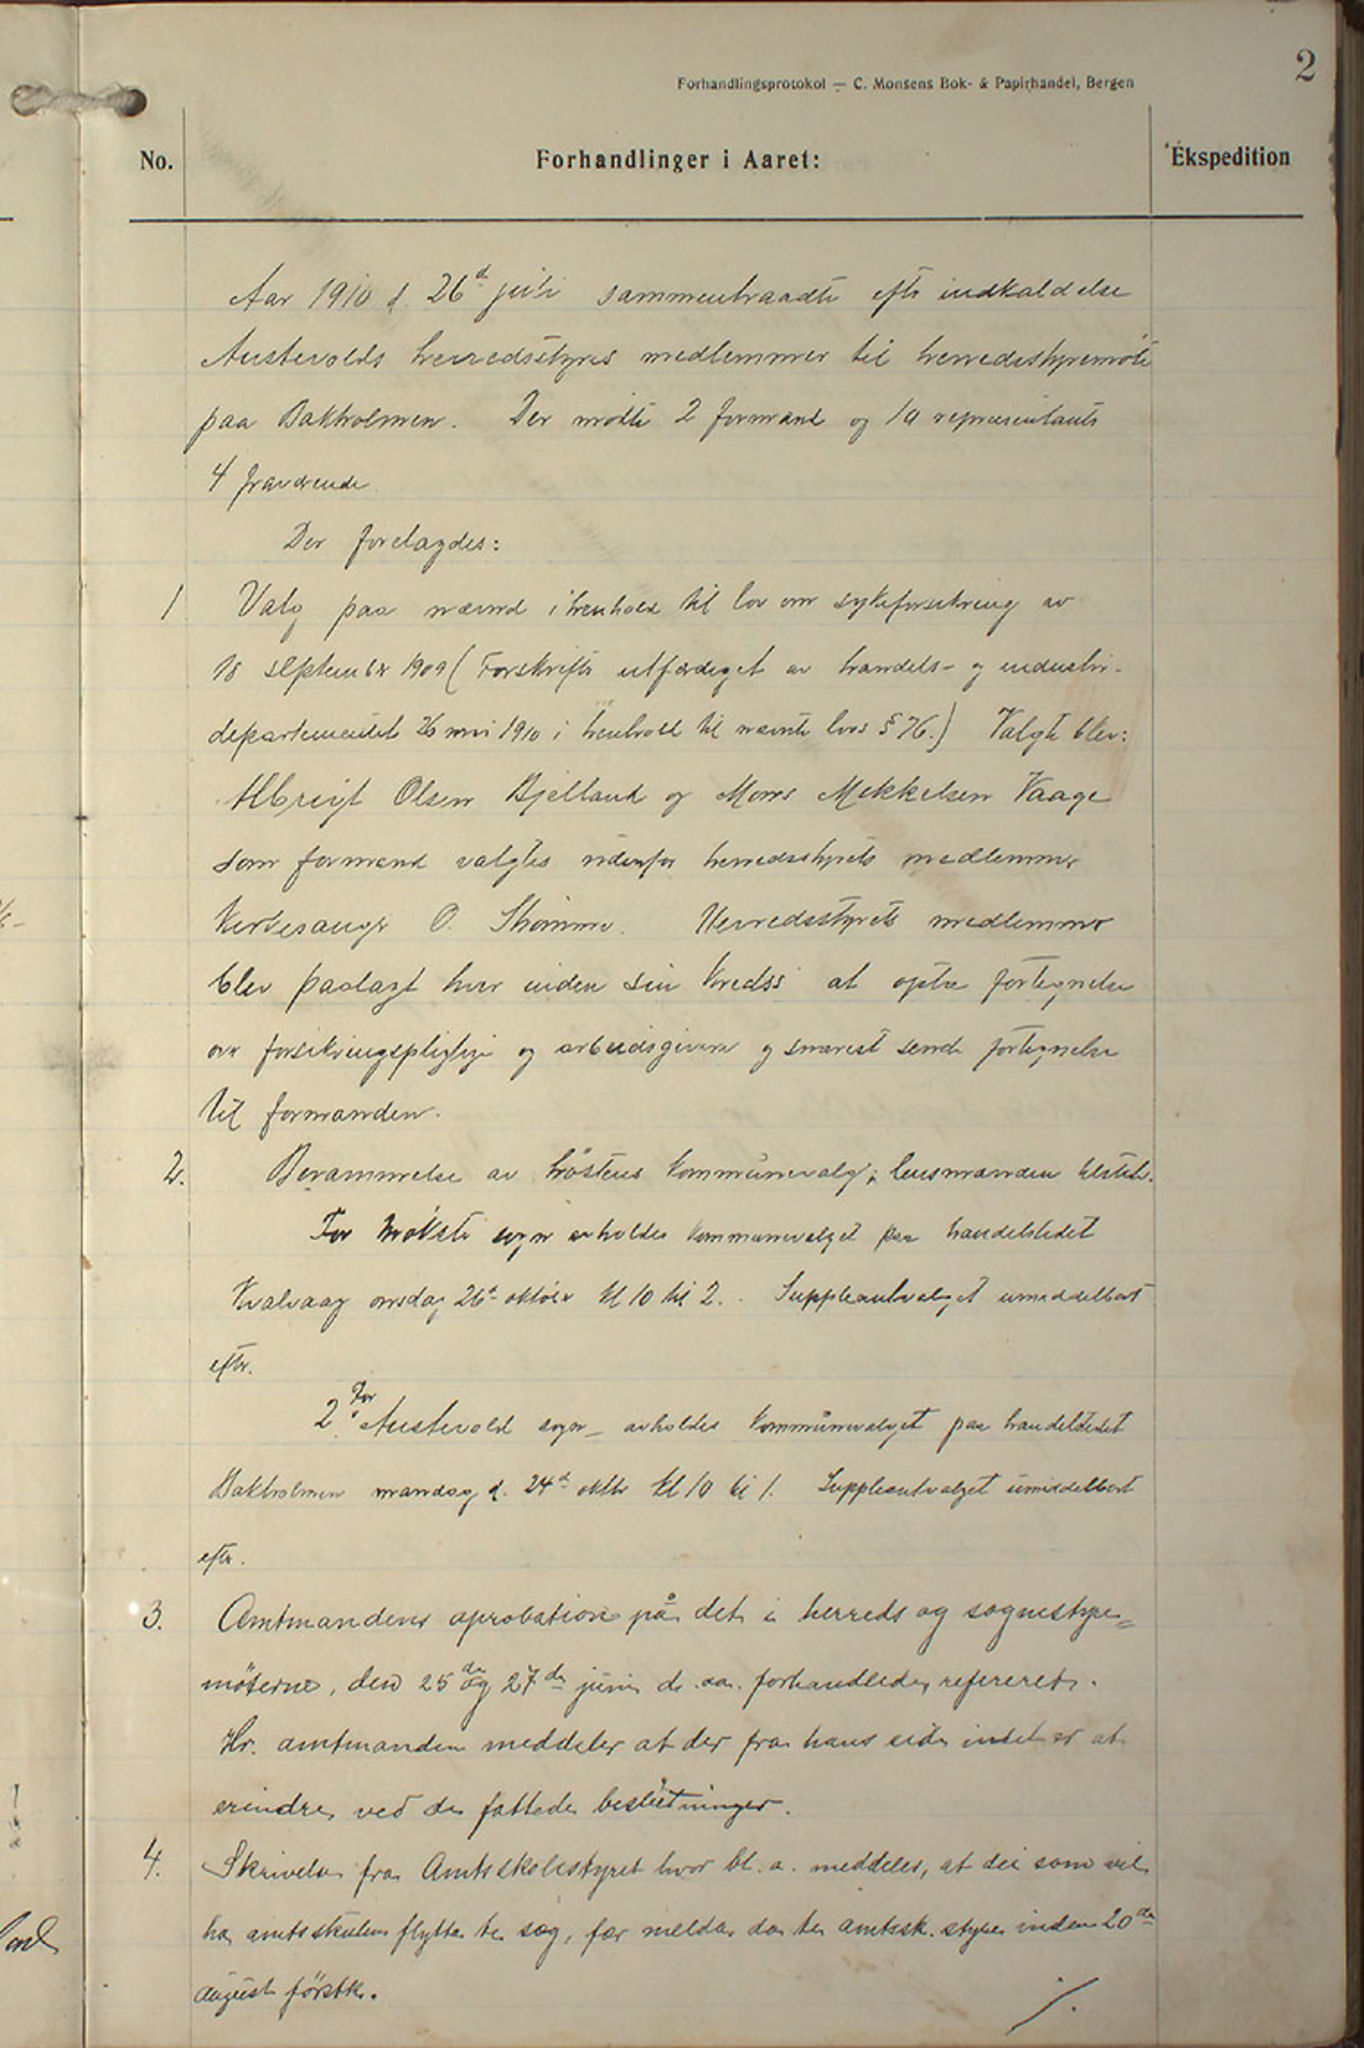 2
Forhandlingsprotokol — C. Monsens Bok- & Papirhandel, Bergen
No. Forhandlinger i Aaret: Ekspedition
Aar 1910 d. 26d juli sammentraadte efter indkaldelse
Austevolds herredsstyres medlemmer til herredsstyremöte
paa Bakholmen. Der mötte 2 formænd og 10 repræsentanter
4 fraværende.
Der forelagdes:
1 Valg paa nævnd i henhold til lov om sykeforsikring av
18 september 1909 (Forskrifter utfærdiget av handels- og industri-
departementet 26 mai 1910 i henhold til nævnte lovs § 76.) Valgte blev:
Albrigt Olsen Bjelland og Mons Mikkelsen Vaage
som formand valgtes utenfor herredsstyrets medlemmer
Kirkesanger O. Strömme. Herredsstyrets medlemmer
blev paalagt hver inden sin kreds at opta fortegnelse
over forsikringspligtige og arbeidsgivere og snarest sende fortegnelse
til formanden.
2. Berammelse av höstens kommunevalg; lensmanden tilstede.
For Mökster sogn avholdes kommunevalget paa handelstedet
Kvalvaag onsdag 26d oktober kl 10 til 2. Suppleantvalget umiddelbart
efter.
2. For Austevold sogn avholdes kommunevalget paa handelstedet
Bakholmen mandag d. 24d oktbr kl 10 til 1. Suppleantvalget umiddelbart
efter.
3. Amtmandens aprobation på det i herreds og sognestyre=
möterne, den 25de og 27de juni d. aa. forhandlede, refereret.
Hr. amtmanden meddeler at der fra hans side intet er at
erindre ved de fattede beslutninger.
4. Skrivelse fra Amtsskolestyret hvor bl. a. meddeles, at dei som vil
ha amtsskulen flytta te seg, får melda da te amtssk. styre inden 20de
august förstk.